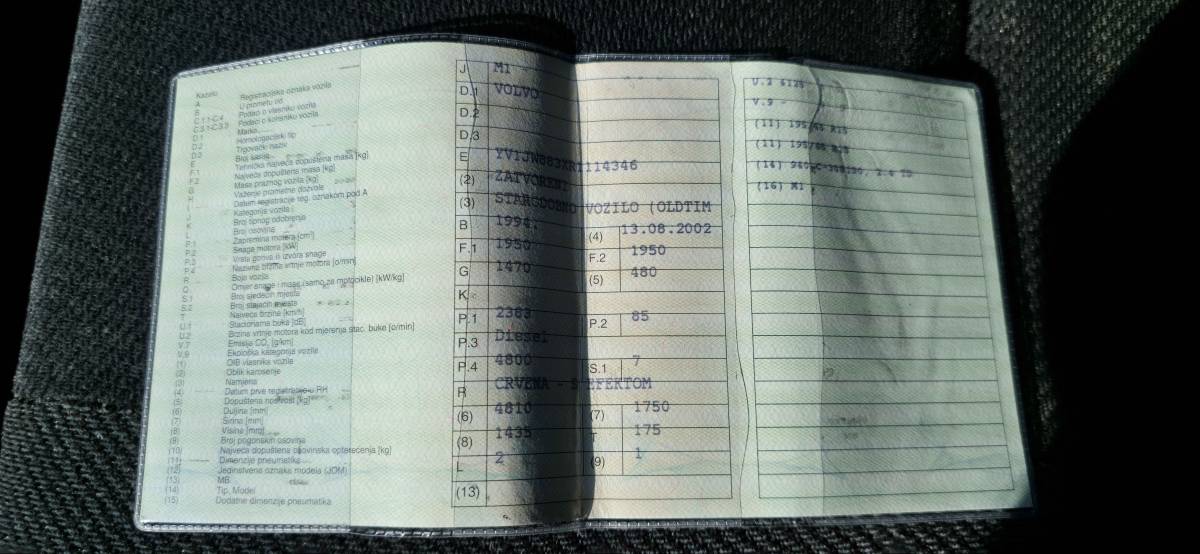 Kazalo
A Registracijska oznaka vozila
B U prometu od
C.1.1-C.4 Podaci o vlasniku vozila
C.3.1-C.3.3 Podaci o korisniku vozila
D.1 Marka
D.2 Homologacijski tip
D.3 Trgovački naziv
E Broj šasije
F.1 Tehnička najveća dopuštena masa [kg]
F.2 Najveća dopuštena masa [kg]
G Masa praznog vozila [kg]
H Važenje prometne dozvole
I Datum registracije reg. oznakom pod A
J Kategorija vozila
K Broj tipnog odobrenja
L Broj osovina
P.1 Zapremina motora [cm³]
P.2 Snaga motora [kW]
P.3 Vrsta goriva ili izvora snage
P.4 Nazivna brzina vrtnje motora [o/min]
R Boja vozila
Q Omjer snage i mase (samo za motocikle) [kW/kg]
S.1 Broj sjedećih mjesta
S.2 Broj stajaćih mjesta
T Najveća brzina [km/h]
U.1 Stacionarna buka [dB]
U.2 Brzina vrtnje motora kod mjerenja stac. buke [o/min]
V.7 Emisija CO₂ [g/km]
V.9 Ekološka kategorija vozila
(1) OIB vlasnika vozila
(2) Oblik karoserije
(3) Namjena
(4) Datum prve registracije u RH
(5) Dopuštena nosivost [kg]
(6) Duljina [mm]
(7) Širina [mm]
(8) Visina [mm]
(9) Broj pogonskih osovina
(10) Najveća dopuštena osovinska opterećenja [kg]
(11) Dimenzije pneumatika
(12) Jedinstvena oznaka modela (JOM)
(13) MB
(14) Tip, Model
(15) Dodatne dimenzije pneumatika
J M1
D.1 VOLVO
D.2
D.3
E
(2) ZATVORENI
(3) STARODOBNO VOZILO (OLDTIM
B 1994. (4) 13.08.2002
F.1 1950 F.2 1950
G 1470 (5) 480
K
P.1 2383 P.2 85
P.3 Diesel
P.4 4800 S.1 7
R CRVENA - S EFEKTOM
(6) 4810 (7) 1750
(8) 1435 T 175
L 2 (9) 1
(13)
V.9 -
(11) 195/65 R15
(11) 195/65 R15
2.4 TD
(16) M1